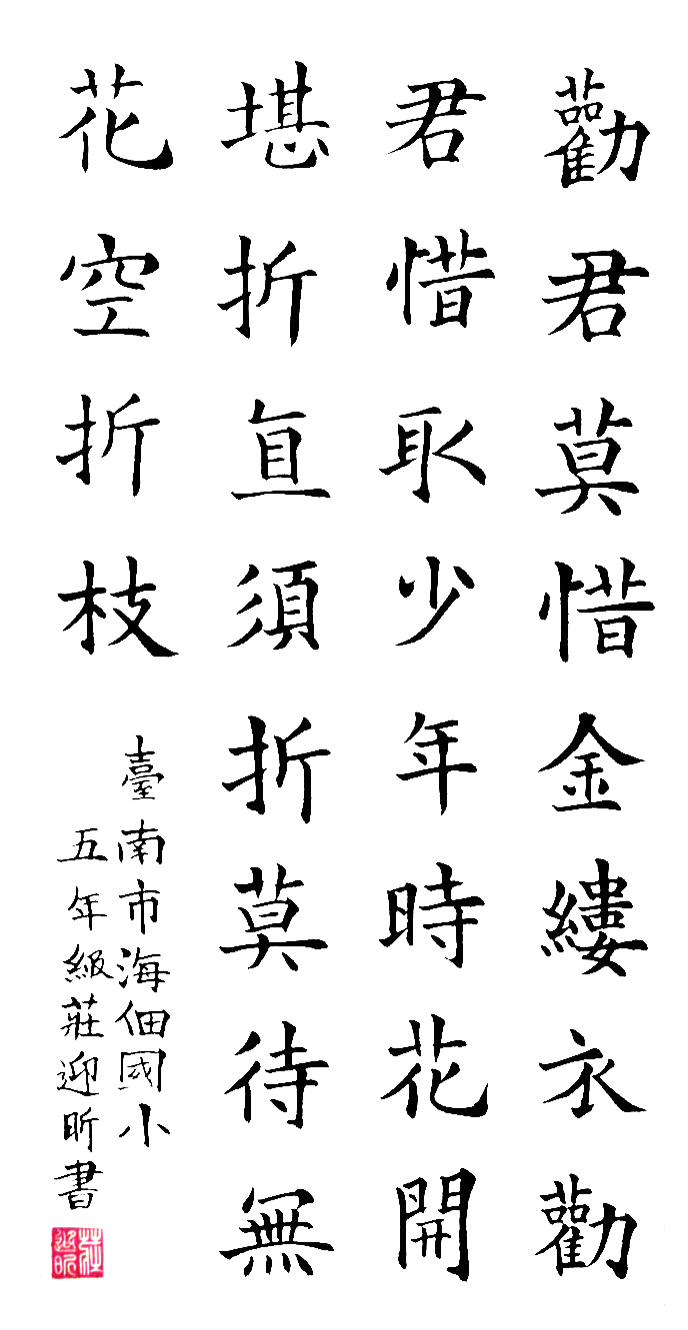 勸君莫惜金縷衣勸
君惜取少年時花開
堪折直須折莫待無
花空折枝
臺南市海佃國小
五年級莊迎昕書
莊迎昕